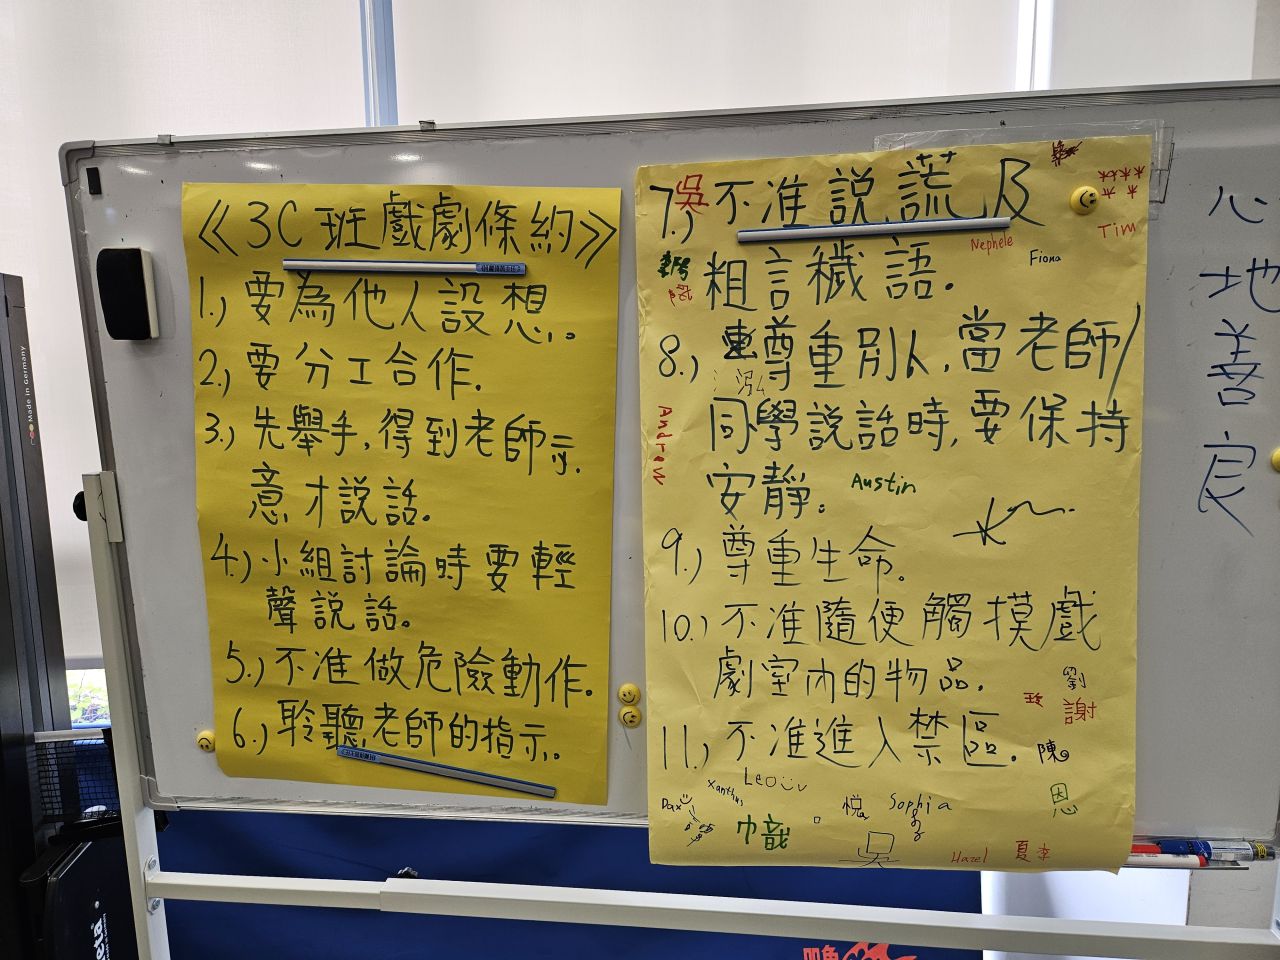 《3C班戲劇條約》
1.) 要為他人設想。
2.) 要分工合作.
3.) 先舉手,得到老師示
意才說話。
4.) 小組討論時要輕
聲說話。
5.) 不准做危險動作.
6.) 聆聽老師的指示.
7.) 不准說謊及
吳
Tim
Nephele
Fiona
粗言穢語。
8.) 尊重別人,當老師/
泓
同學說話時,要保持
Andrew
安靜。
Austin
9.) 尊重生命。
10.) 不准隨便觸摸戲
劇室內的物品.
劉
謝
11.) 不准進入禁區.
陳
Leo
Xanthus
Dax
悅
Sophia
恩
吳
Hazel
夏李
心地善良
Made in Germany